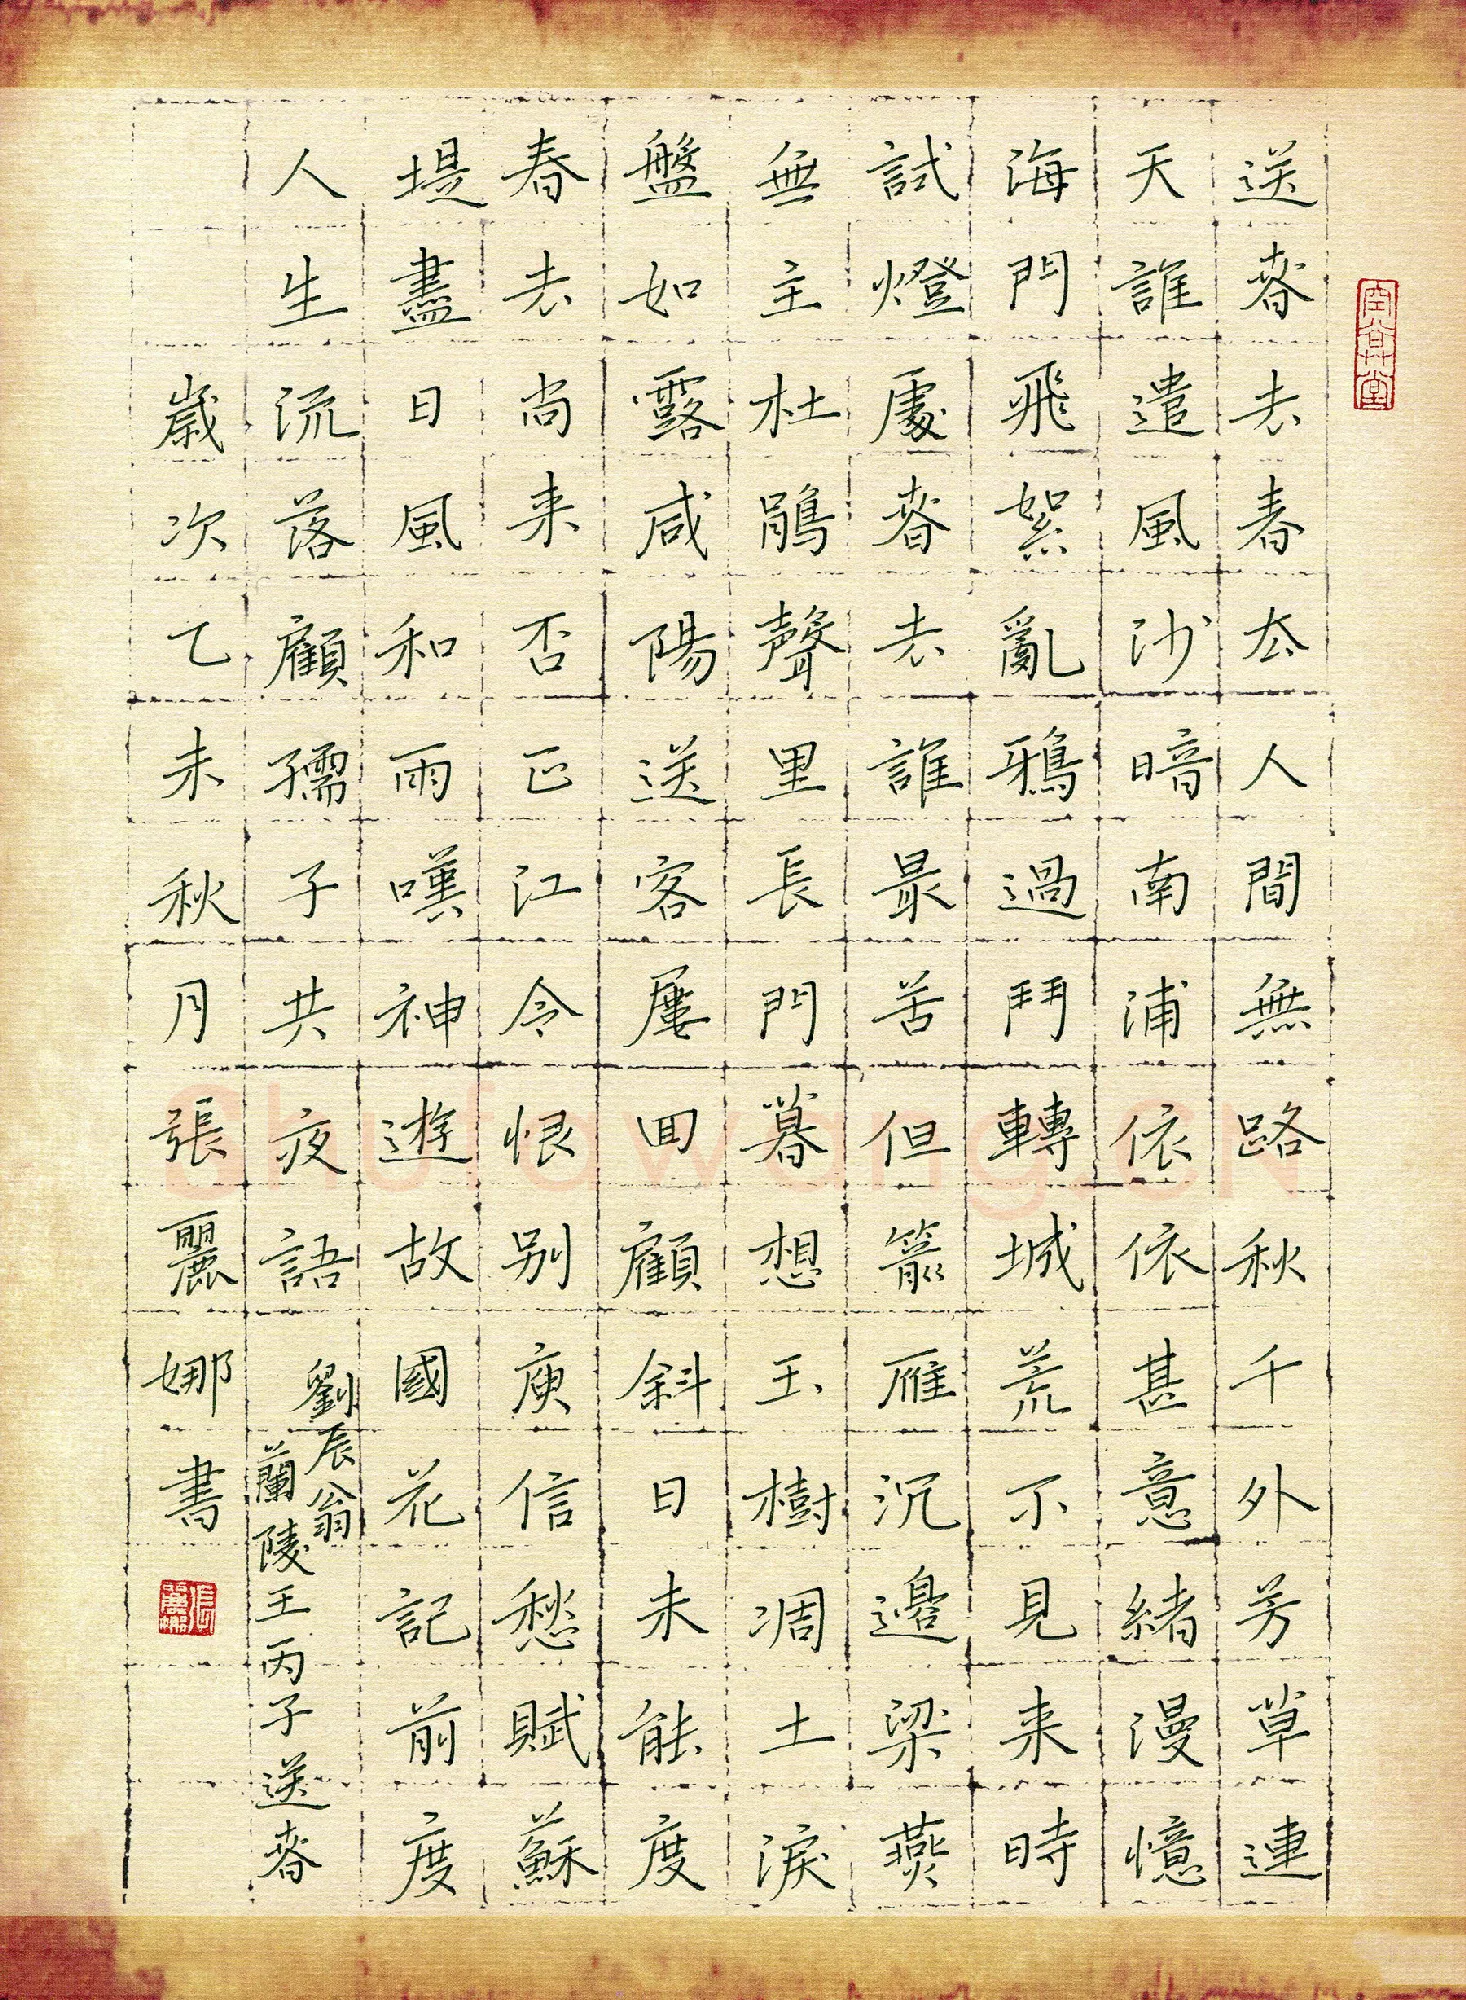 送春去春去人間無路秋千外芳草連
天誰遣風沙暗南浦依依甚意緒漫憶
海門飛絮亂鴉過鬥轉城荒不見来時
試燈處春去誰最苦但箭雁沉邊梁燕
無主杜鵑聲里長門暮想玉樹凋土淚
盤如露咸陽送客屢回顧斜日未能度
春去尚来否正江令恨别庾信愁蘇
堤盡日風和雨嘆神遊故國花記前度
人生流落顧孺子共夜語
劉辰翁
蘭陵王丙子送春
歲次乙未秋月張麗娜書
張麗娜
Shufawang.CN